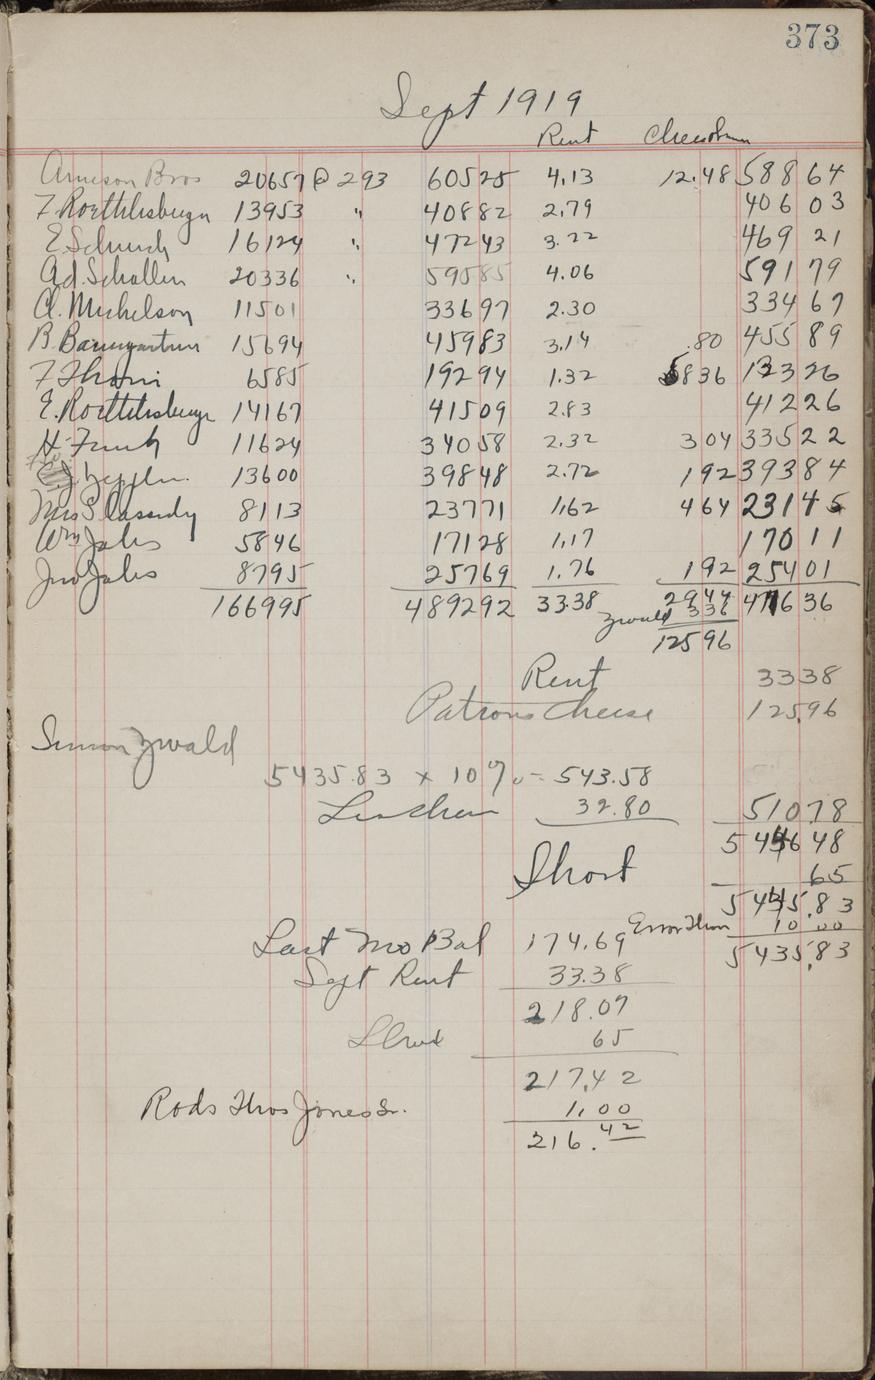 373
Sept 1919
Rent
Arneson Bros 20657 @ 293 60525 4.13 12.48 588 64
F. Roethlisberger 13953 " 40882 2.79 406 03
E. Schurch 16124 " 47243 3.22 469 21
Ad. Schallen 20336 " 59585 4.06 591 79
Cl. Michelson 11501 33697 2.30 334 67
B. Baumgartner 15694 45983 3.14 .80 455 89
F Thoni 6585 19294 1.32 5836 123 26
E. Roethlisberger 14167 41509 2.83 412 26
H. Funk 11624 34058 2.32 304 335 22
Zepplin. 13600 39848 2.72 192 393 84
Mrs Cassidy 8113 23771 1,62 464 231 45
Wm Jabs 5846 17128 1,17 170 11
Jno Jabs 8795 25769 1.76 192 254 01
166995 489292 33.38 2944 47636
Zwald 336
12596
Rent 3338
Patrons Cheese 125,96
Simon Zwald
5435.83 x 10% = 543.58
32.80 51078
5 4 6 48
Short 65
5445.83
Error Thoni 10 00
Last Mo Bal 174.69 5435,83
Sept Rent 33.38
218.07
Short 65
217,42
Rods Thos Jones Sr. 1,00
216.42